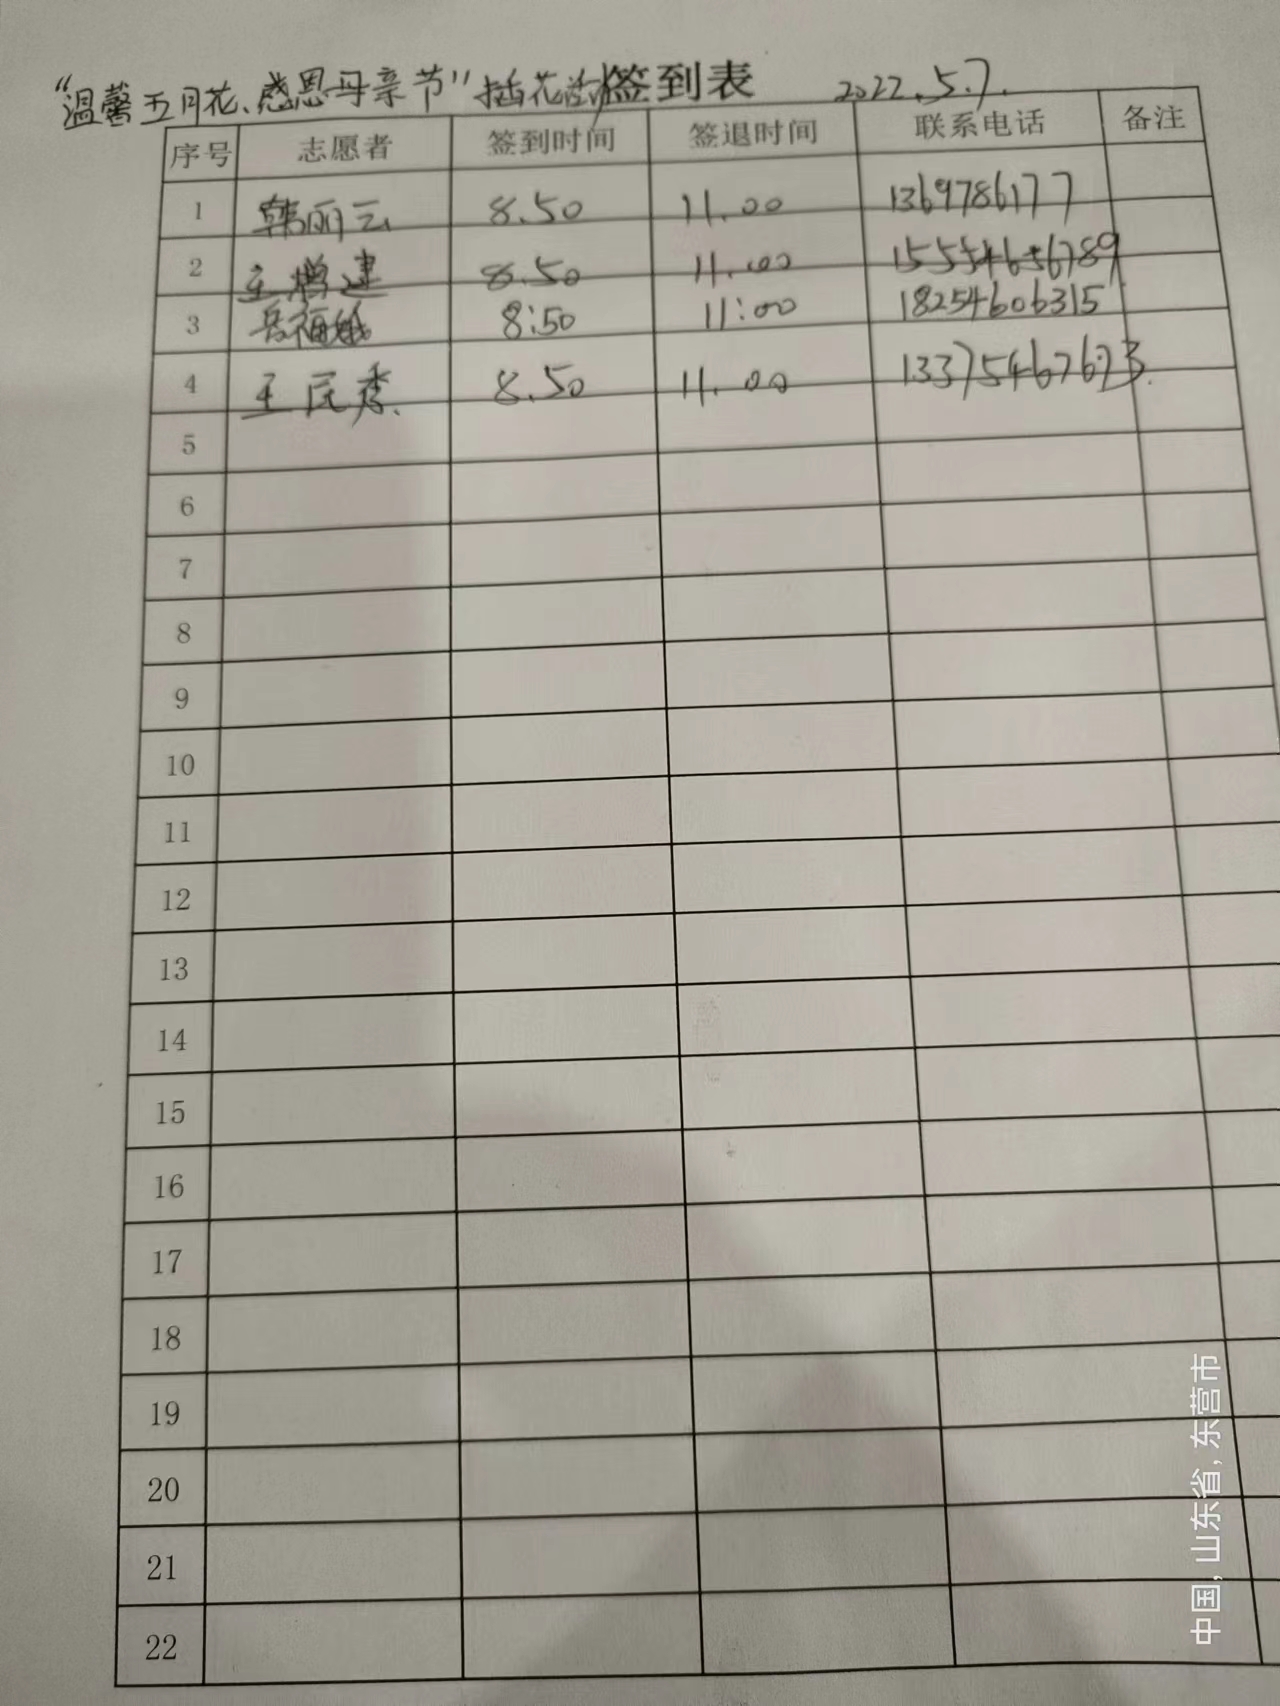 “温馨五月花、感恩母亲节”插花活动签到表 2022.5.7.
序号 志愿者 签到时间 签退时间 联系电话 备注
1 韩丽云 8.50 11.00 1369786177
2 王增建 8.50 11.00 15554656789
3 岳福娥 8:50 11:00 18254606315
4 王民秀. 8.50 11.00 13375467673.
5
6
7
8
9
10
11
12
13
14
15
16
17
18
19
20
21
22
中国, 山东省, 东营市